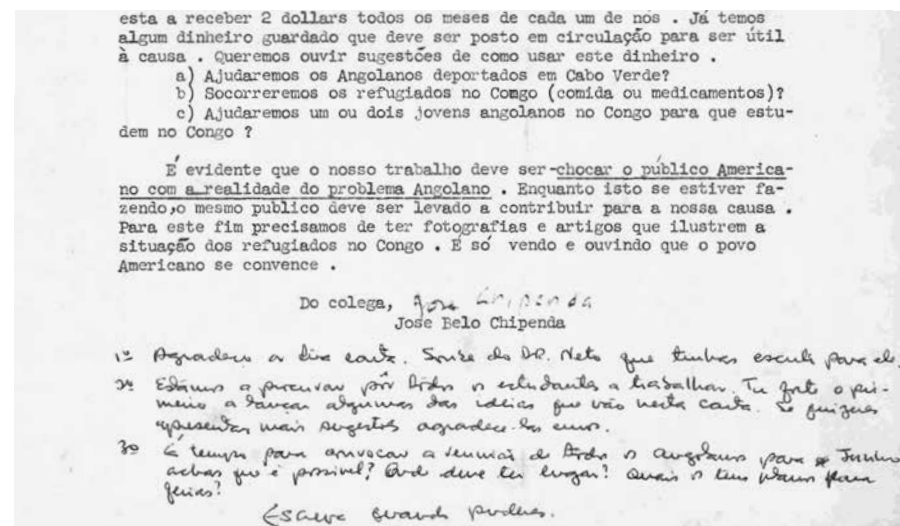 esta a receber 2 dollars todos os meses de cada um de nós . Já temos
algum dinheiro guardado que deve ser posto em circulação para ser útil
à causa . Queremos ouvir sugestões de como usar este dinheiro .
a) Ajudaremos os Angolanos deportados em Cabo Verde?
b) Socorreremos os refugiados no Congo (comida ou medicamentos)?
c) Ajudaremos um ou dois jovens angolanos no Congo para que estu-
dem no Congo ?
É evidente que o nosso trabalho deve ser-chocar o público America-
no com a realidade do problema Angolano . Enquanto isto se estiver fa-
zendo,o mesmo publico deve ser levado a contribuir para a nossa causa .
Para este fim precisamos de ter fotografias e artigos que ilustrem a
situação dos refugiados no Congo . E só vendo e ouvindo que o povo
Americano se convence .
Do colega, Jose Chipenda
Jose Belo Chipenda
1º Agradeço a tua carta. Soube do DR. Neto que tinhas escrito para ele.
2º Estamos a procurar pôr todos os estudantes a trabalhar. Tu foste o pri-
meiro a lançar algumas das ideias que vão nesta carta. Se quizeres
apresentar mais sugestões agradece-las emos.
3º É tempo para convocar a reunião de todos os angolanos para Junho
achas que é possivel? Onde deve ter lugar? Quais os teus planos para
ferias?
Escreve quando puderes.